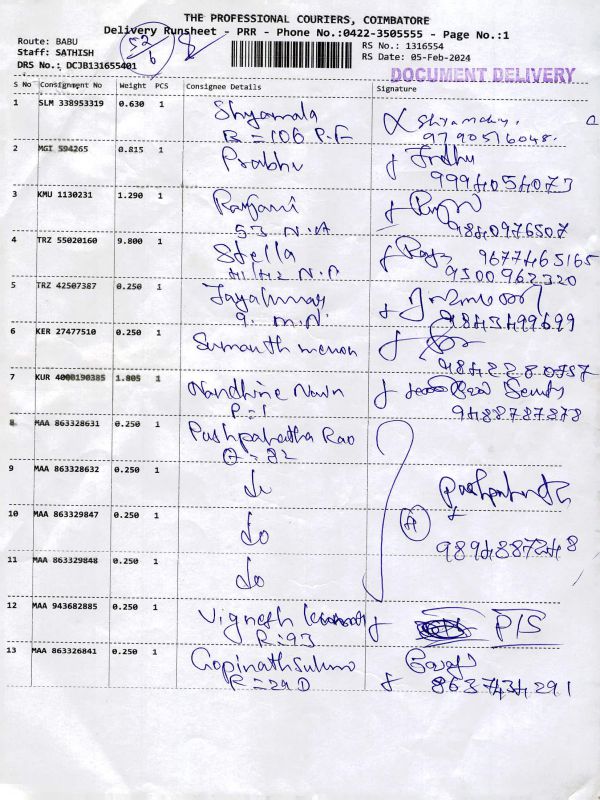 THE PROFESSIONAL COURIERS, COIMBATORE
Delivery Runsheet - PRR - Phone No.:0422-3505555 - Page No.:1
Route: BABU
Staff: SATHISH
DRS No.: DCJB131655401
52
6
RS No.: 1316554
RS Date: 05-Feb-2024
DOCUMENT DELIVERY
S No Consignment No Weight PCS Consignee Details Signature
1 SLM 338953319 0.630 1 Shyamala
B=106 P.F 9790516048.
2 MGI 594265 0.815 1 Prabhu
9994054073
3 KMU 1130231 1.290 1 Ranjani
53 N.A 9840976507
4 TRZ 55020160 9.800 1 Stella 9677465165
41/42 N.A 9500962320
5 TRZ 42507387 0.250 1
9. M.N. 9843499699
6 KER 27477510 0.250 1 Sumanth menon
9842280757
7 KUR 4000190385 1.805 1 Nandhine
P=1 9488787878
8 MAA 863328631 0.250 1 Pushpalatha Rao
Q=82
9 MAA 863328632 0.250 1 do Pushpalatha
10 MAA 863329847 0.250 1 do
9894887248
11 MAA 863329848 0.250 1 do
12 MAA 943682885 0.250 1 Vignesh P/S
R=93
13 MAA 863326841 0.250 1
R=29D 8637434291